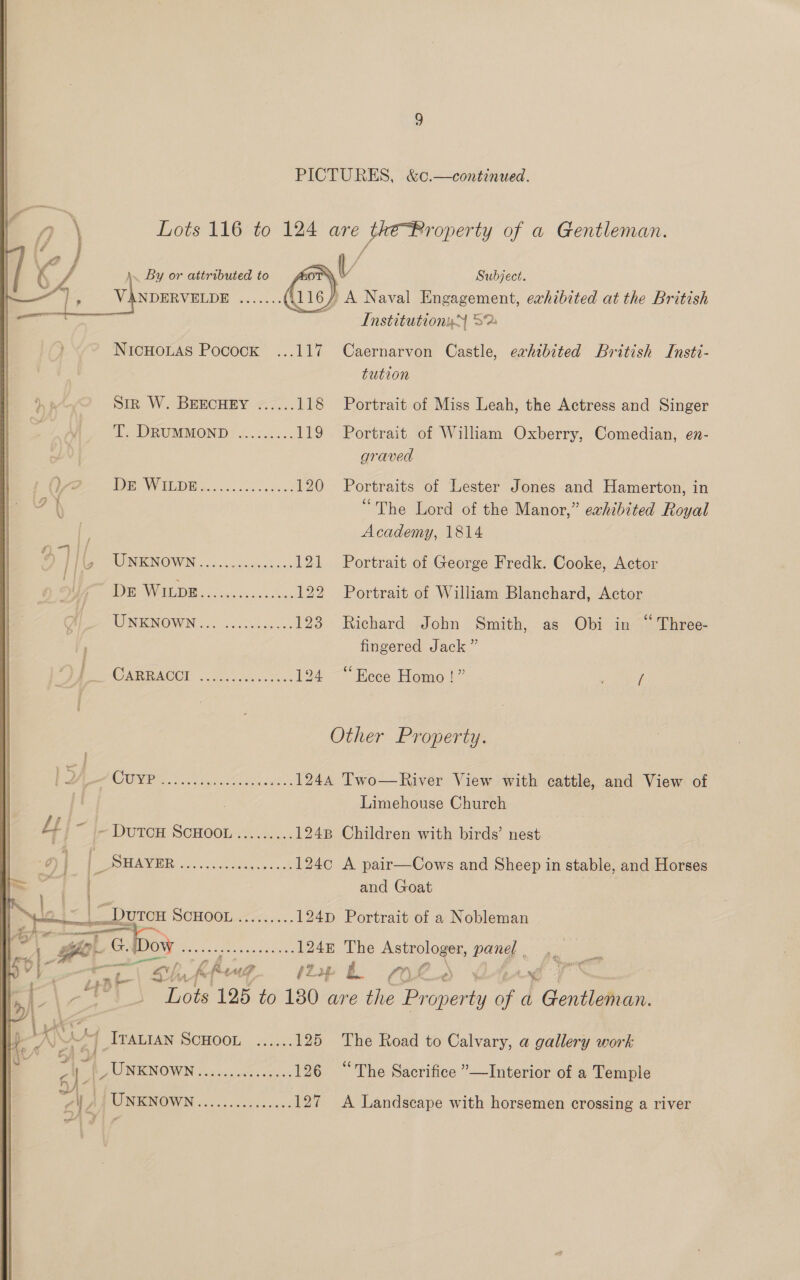 9
PICTURES, &c.—continued.
Lots 116 to 124 are the Property of a Gentleman.
By or attributed to for Subject.
VANDERVELDE ....... 116 A Naval Engagement, exhibited at the British
Institution 52
NICHOLAS POCOCK ...117 Caernarvon Castle, exhibited British Insti-
tution
SIR W. BEECHEY ......118 Portrait of Miss Leah, the Actress and Singer
T. DRUMMOND .........119 Portrait of William Oxberry, Comedian, en-
graved
DE WILDE...............120 Portraits of Lester Jones and Hamerton, in
“The Lord of the Manor,” exhibited Royal
Academy, 1814
UNKNOWN...............121 Portrait of George Fredk. Cooke, Actor
DE WILDE...............122 Portrait of William Blanchard, Actor
UNKNOWN... ...........123 Richard John Smith, as Obi in “Three-
fingered Jack”
CARRACCI ...............124 “Ecce Homo!”
Other Property.
CUYP .....................124A Two—River View with cattle, and View of
Limehouse Church
DUTCH SCHOOL.........124B Children with birds’ nest
SHAYER ..................124C A pair—Cows and Sheep in stable, and Horses
and Goat
DUTCH SCHOOL.........124D Portrait of a Nobleman
G. DOW ..................124E The Astrologer, panel
Lots 125 to 130 are the Property of a Gentleman.
ITALIAN SCHOOL ......125 The Road to Calvary, a gallery work
UNKNOWN...............126 “The Sacrifice”—Interior of a Temple
UNKNOWN...............127 A Landscape with horsemen crossing a river